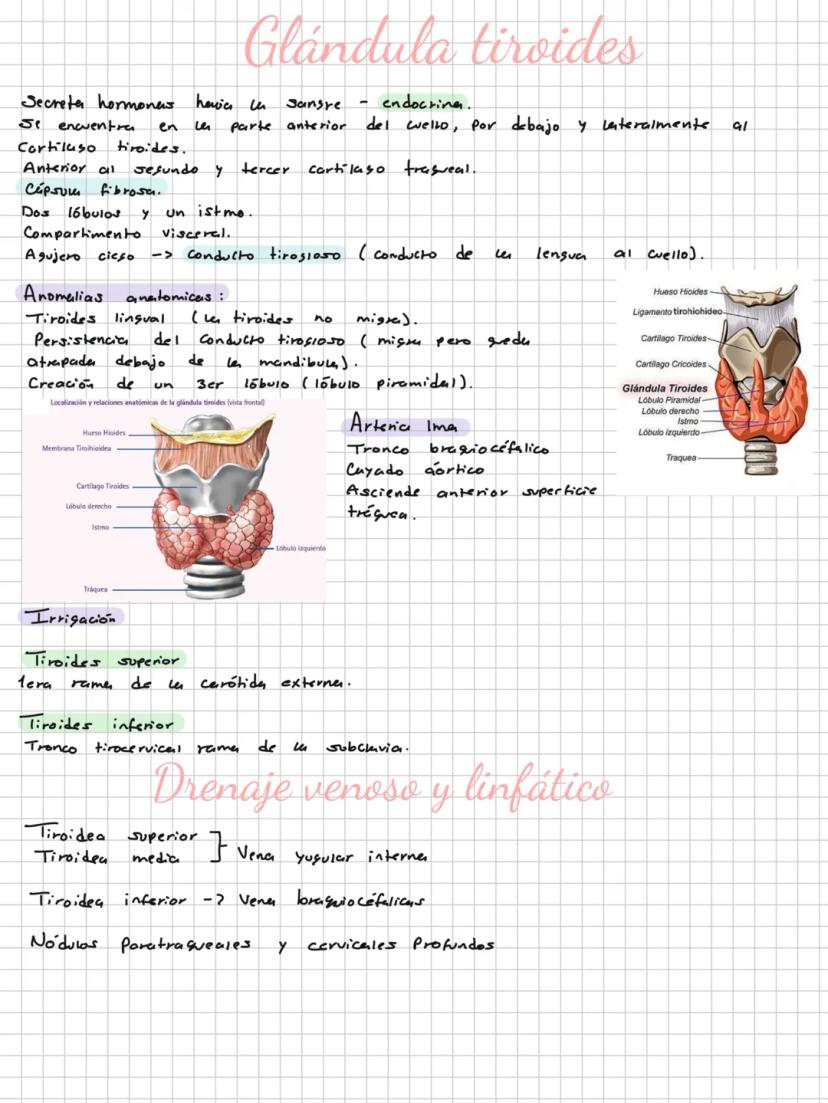 Glándula tiroides
Secreta hormonas hacia la sangre - endocrina.
Se encuentra en la parte anterior del cuello, por debajo y lateralmente al
Cartílago tiroides.
Anterior al segundo y tercer cartílago traqueal.
Cápsula fibrosa.
Dos lóbulos y un istmo.
Compartimento visceral.
Agujero ciego -> conducto tirogloso (conducto de la lengua al cuello).
Anomalias anatomicas:
Tiroides lingual (la tiroides no migra).
Persistencia del conducto tirogloso (migra pero queda
atrapada debajo de la mandibula).
Creación de un 3er lóbulo (lóbulo piramidal).
Hueso Hioides
Ligamento tirohiohideo
Cartilago Tiroides
Cartilago Cricoides
Glándula Tiroides
Lóbulo Piramidal
Lóbulo derecho
Istmo
Lóbulo izquierdo
Traquea
Localización y relaciones anatómicas de la glándula tiroides (vista frontal)
Hueso Hioides
Membrana Tiroihioidea
Cartílago Tiroides
Lóbulo derecho
Istmo
Lóbulo izquierdo
Tráquea
Arteria Ima
Tronco braquiocéfalico
Cayado aórtico
Asciende anterior superficie
tráquea.
Irrigación
Tiroides superior
1era rama de la carótida externa.
Tiroides inferior
Tronco tirocervical rama de la subclavia.
Drenaje venoso y linfático
Tiroidea superior
Tiroidea media ] Vena yugular interna
Tiroidea inferior -> Vena braquiocéfalicas
Nódulos Paratraqueales y cervicales Profundos